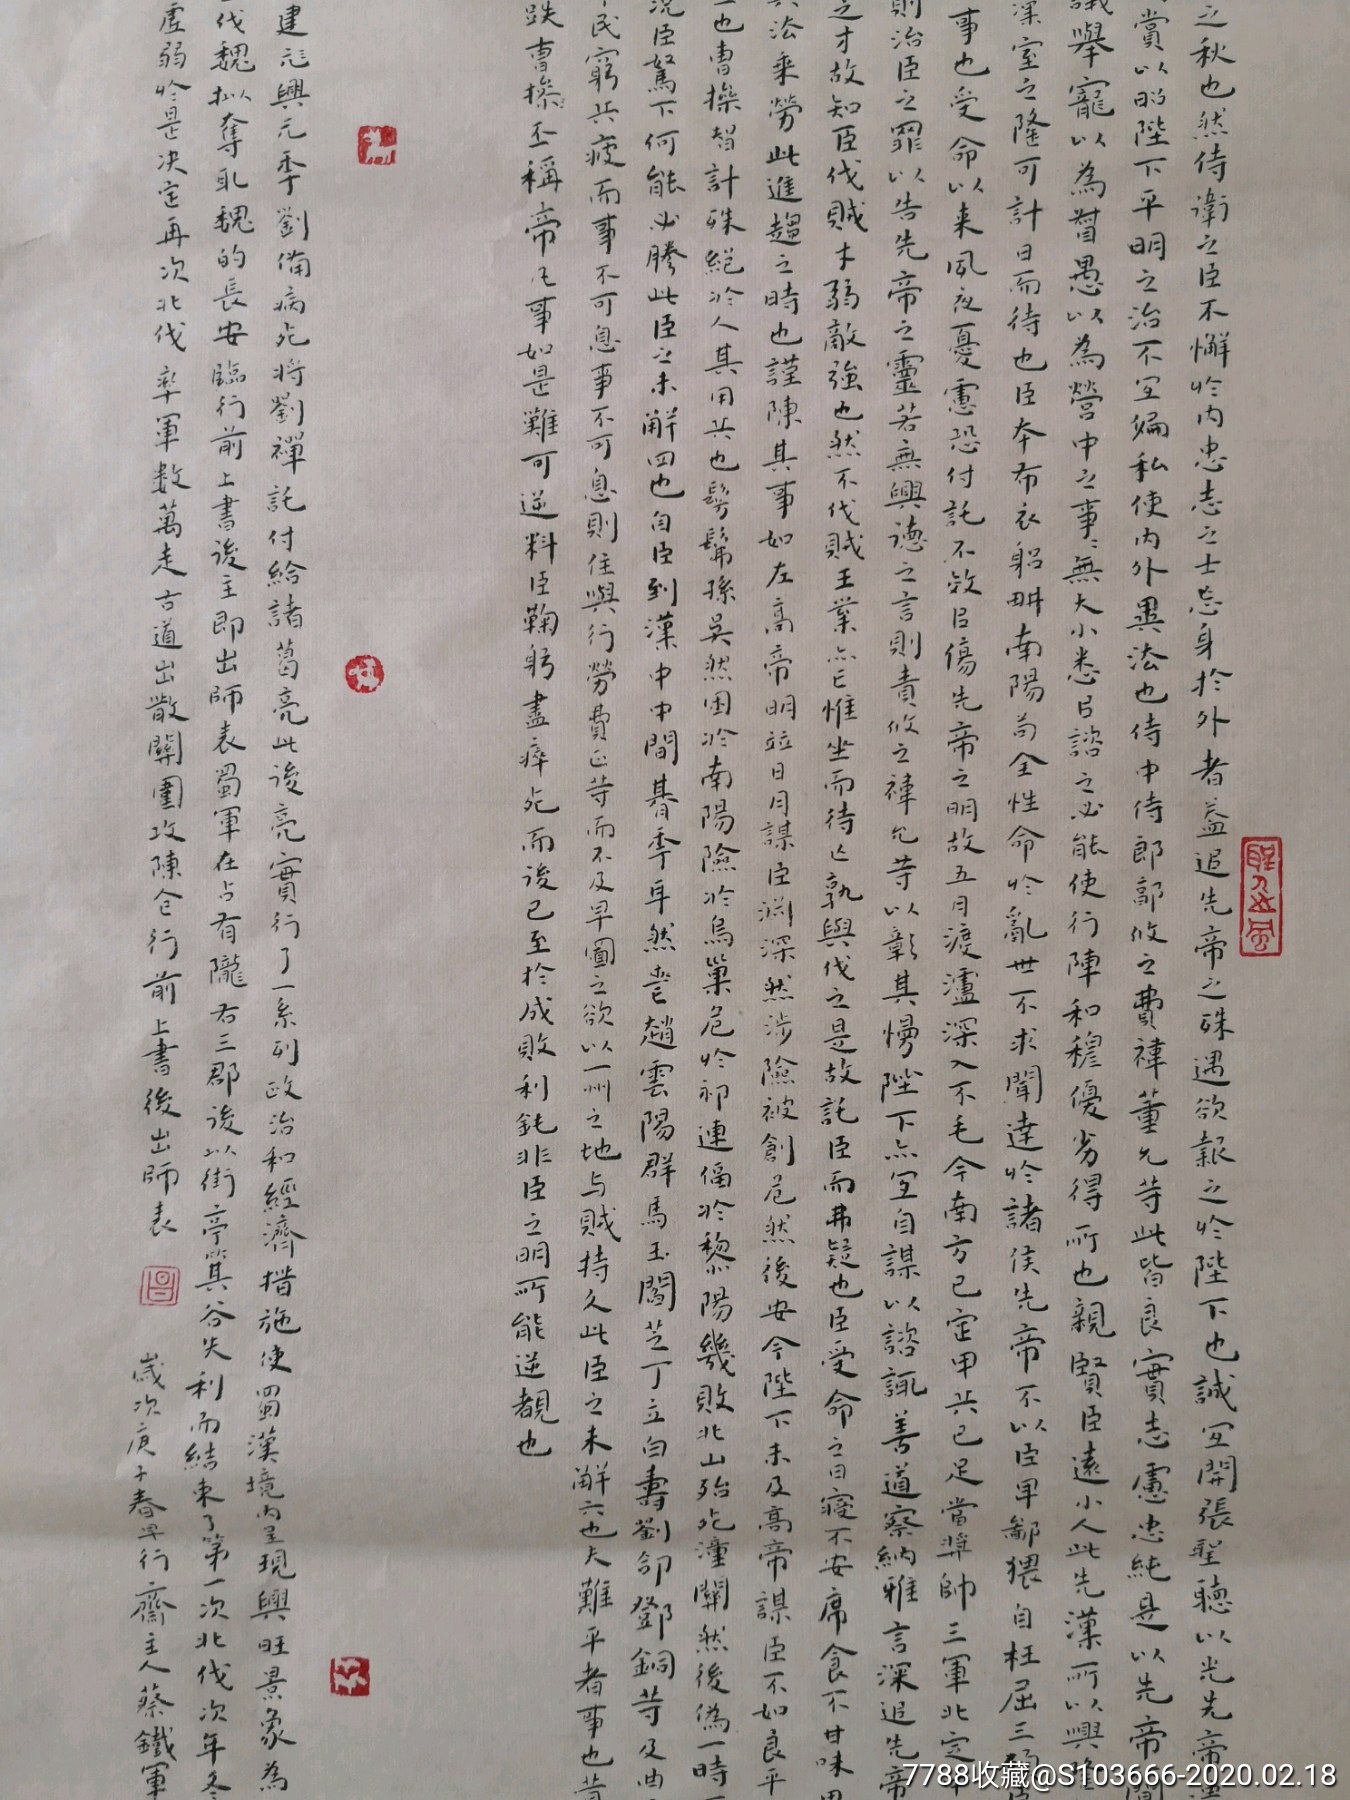 之秋也然侍衛之臣不懈於內忠志之士忘身於外者蓋追先帝之殊遇欲報之於陛下也誠宜開張聖聽以光先帝遺
賞以昭陛下平明之治不宜偏私使內外異法也侍中侍郎郭攸之費禕董允等此皆良實志慮忠純是以先帝簡
議舉寵以為督愚以為營中之事無大小悉以諮之必能使行陣和穆優劣得所也親賢臣遠小人此先漢所以興隆
漢室之隆可計日而待也臣本布衣躬耕南陽苟全性命於亂世不求聞達於諸侯先帝不以臣卑鄙猥自枉屈三顧臣
事也受命以來夙夜憂慮恐付託不效以傷先帝之明故五月渡瀘深入不毛今南方已定甲兵已足當獎帥三軍北定中
則治臣之罪以告先帝之靈若無興德之言則責攸之禕允等以彰其慢陛下亦宜自謀以諮諏善道察納雅言深追先帝
之才故知臣伐賊才弱敵強也然不伐賊王業亦亡惟坐而待亡孰與伐之是故託臣而弗疑也臣受命之日寢不安席食不甘味思
兵法乘勞此進趨之時也謹陳其事如左高帝明並日月謀臣淵深然涉險被創危然後安今陛下未及高帝謀臣不如良平
二也曹操智計殊絕於人其用兵也髣髴孫吳然困於南陽險於烏巢危於祁連偪於黎陽幾敗北山殆死潼關然後偽一時
況臣駑下何能必勝此臣之未解四也自臣到漢中中間朞年耳然喪趙雲陽群馬玉閻芝丁立白壽劉郃鄧銅等及曲
民窮兵疲而事不可息事不可息則住與行勞費正等而不及早圖之欲以一州之地与賊持久此臣之未解六也夫難平者事也昔
跌曹操丕稱帝凡事如是難可逆料臣鞠躬盡瘁死而後已至於成敗利鈍非臣之明所能逆覩也
建元興元年劉備病死將劉禪託付給諸葛亮此後亮實行了一系列政治和經濟措施使蜀漢境內呈現興旺景象為
伐魏拟奪取魏的長安臨行前上書後主即出師表蜀軍在占有隴右三郡後以街亭箕谷失利而結束了第一次北伐次年冬
虛弱於是決定再次北伐率軍數萬走古道出散關圍攻陳仓行前上書後出師表
歲次庚子春早行齋主人蔡鐵軍
7788收藏@S103666-2020.02.18